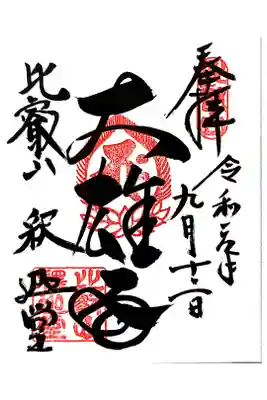 奉拝
令和元年
九月十二日
大雄殿
比叡山 釈迦堂